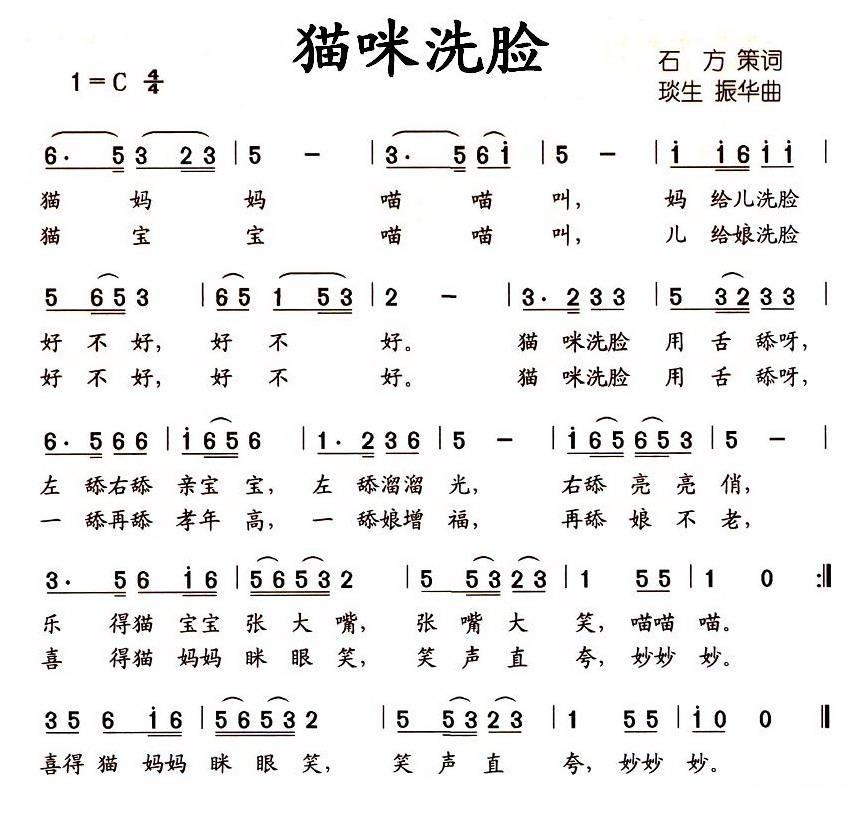 猫咪洗脸
1=C 4/4
石方策词
琰生 振华曲
6· 5 3 2 3 | 5 - | 3· 5 6 i | 5 - | i i 6 i i |
猫 妈 妈 喵 喵 叫, 妈 给儿洗脸
猫 宝 宝 喵 喵 叫, 儿 给娘洗脸
5 6 5 3 | 6 5 1 5 3 | 2 - | 3· 2 3 3 | 5 3 2 3 3 |
好 不 好, 好 不 好。 猫 咪洗脸 用 舌 舔呀,
好 不 好, 好 不 好。 猫 咪洗脸 用 舌 舔呀,
6· 5 6 6 | i 6 5 6 | 1· 2 3 6 | 5 - | i 6 5 6 5 3 | 5 - |
左 舔右舔 亲宝 宝, 左 舔溜溜 光, 右舔 亮 亮 俏,
一 舔再舔 孝年 高, 一 舔娘增 福, 再舔 娘 不 老,
3· 5 6 i 6 | 5 6 5 3 2 | 5 5 3 2 3 | 1 5 5 | 1 0 :||
乐 得猫 宝宝 张 大 嘴, 张 嘴 大 笑, 喵喵 喵。
喜 得猫 妈妈 眯 眼 笑, 笑 声 直 夸, 妙妙 妙。
3 5 6 i 6 | 5 6 5 3 2 | 5 5 3 2 3 | 1 5 5 | i 0 0 ||
喜得 猫 妈妈 眯 眼 笑, 笑 声 直 夸, 妙妙 妙。